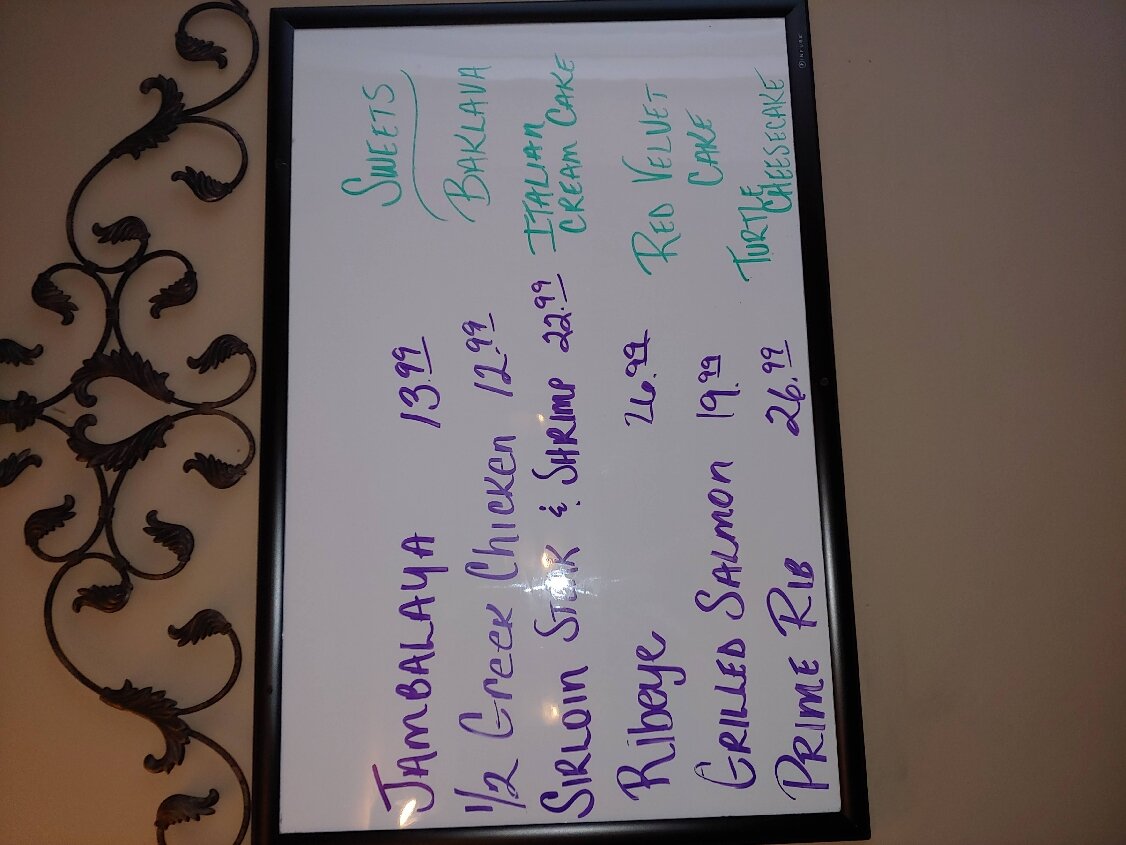 JAMBALAYA 13.99
1/2 Greek Chicken 12.99
SIRLOIN STEAK & SHRIMP 22.99
Ribeye 26.99
GRILLED SALMON 19.99
PRIME RIB 26.99
SWEETS
BAKLAVA
ITALIAN
CREAM CAKE
RED VELVET
CAKE
TURTLE
CHEESECAKE